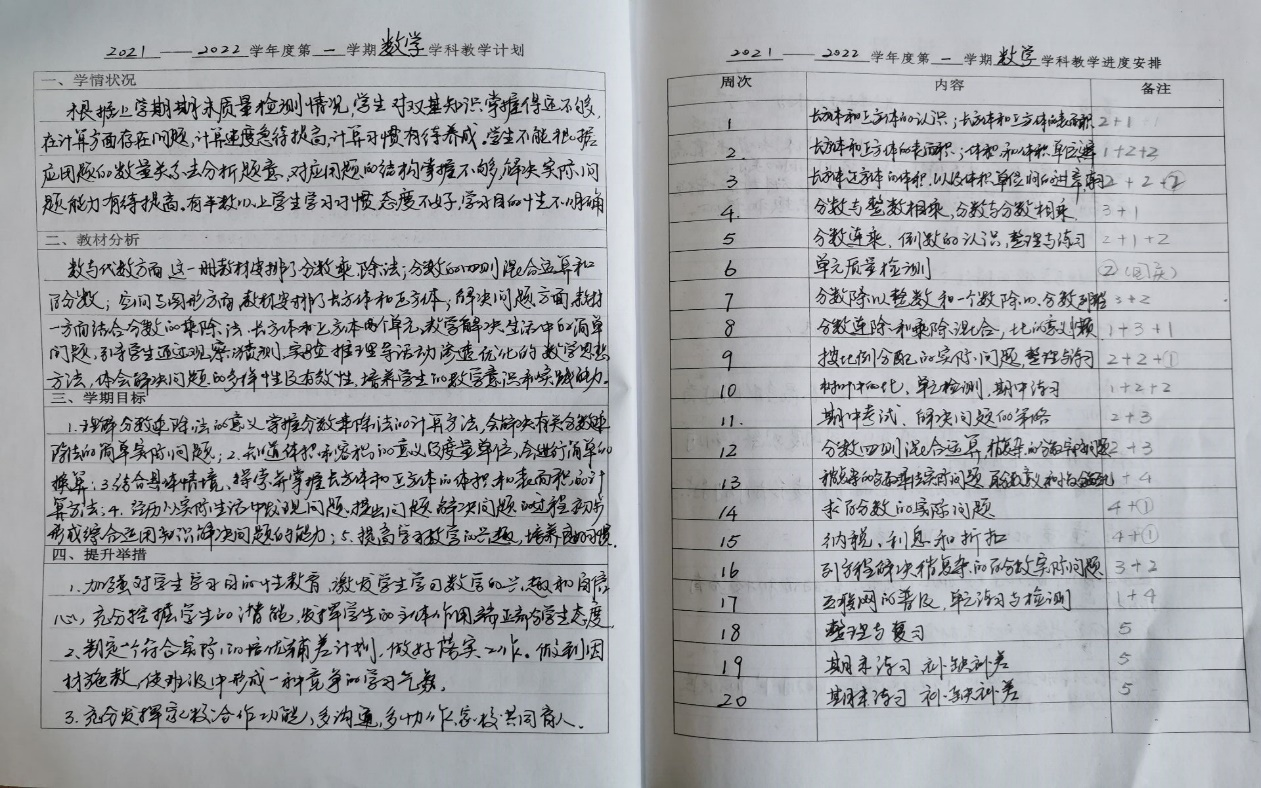 2021 —— 2022 学年度第 一 学期 数学 学科教学计划
一、学情状况
根据上学期期末质量检测情况,学生对双基知识掌握得还不够,
在计算方面存在问题,计算速度急待提高,计算习惯有待养成。学生不能根据
应用题的数量关系去分析题意,对应用题的结构掌握不够,解决实际问
题能力有待提高。有半数以上学生学习习惯、态度不好,学习目的性不明确
二、教材分析
数与代数方面 这一册教材安排了分数乘、除法;分数的四则混合运算和
百分数;空间与图形方面,教材安排了长方体和正方体;解决问题方面,教材
一方面结合分数的乘除法、长方体和正方体两个单元,教学解决生活中的简单
问题,引导学生通过观察、猜测、实验、推理等活动渗透优化的数学思想
方法,体会解决问题的多样性及有效性,培养学生的数学意识和实践能力。
三、学期目标
1.理解分数乘除法的意义,掌握分数乘除法的计算方法,会解决有关分数乘
除法的简单实际问题;2.知道体积和容积的意义及度量单位,会进行简单的
换算;3.结合具体情境、探索并掌握长方体和正方体的体积和表面积的计
算方法;4.经历从实际生活中发现问题、提出问题、解决问题的过程,初步
形成综合运用知识解决问题的能力;5.提高学习数学的兴趣,培养良好习惯.
四、提升举措
1.加强对学生学习目的性教育,激发学生学习数学的兴趣和自信
心,充分挖掘学生的潜能,发挥学生的主体作用,端正部分学生态度
2.制定一个符合实际的培优辅差计划,做好落实工作。做到因
材施教,使班级中形成一种竞争的学习气氛.
3.充分发挥家校合作功能,多沟通,多协作,家校共同育人.
2021 —— 2022 学年度第 一 学期 数学 学科教学进度安排
周次 内容 备注
1 长方体和正方体的认识;长方体和正方体的表面积 2+1
2. 长方体和正方体的表面积;体积和体积单位 1+2+2
3 长方体正方体的体积,以及体积单位间的进率 2+2+②
4. 分数与整数相乘,分数与分数相乘. 3+1
5 分数连乘、倒数的认识,整理与练习 2+1+2
6 单元质量检测 ②(国庆)
7 分数除以整数和一个数除以分数 3+2
8 分数连除和乘除混合,比的意义 1+3+1
9 按比例分配的实际问题,整理与练习 2+2+①
10 树叶中的比、单元检测,期中练习 1+2+2
11. 期中考试、解决问题的策略 2+3
12 分数四则混合运算 稍复杂的分数实际问题 2+3
13 稍复杂的分数乘法实际问题 +4
14 求百分数的实际问题 4+①
15 纳税、利息和折扣 4+①
16 列方程解决稍复杂的百分数实际问题 3+2
17 互联网的普及,单元练习与检测 1+4
18 整理与复习 5
19 期末练习 补缺补差 5
20 期末练习 补缺补差 5